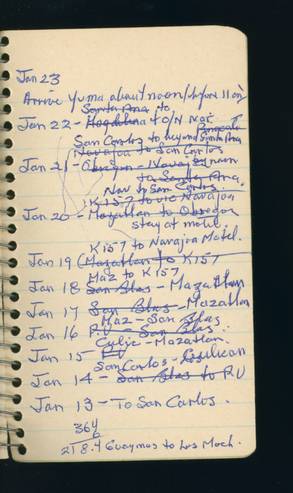 Jan 23
Arrive Yuma about noon/before 11 am
Santa Ana to
Jan 22 - Magdalena to O/N Nor.
San Carlos to beyond Santa Ana
Navajoa to San Carlos
Jan 21 - Obregon - Navajoa
to Santa Ana.
Nav to San Carlos.
K157 to vic Navajoa
Jan 20 - Mazatlan to Obregon
stay at motel.
K157 to Navajoa Motel.
Jan 19 (Mazatlan to K157
Maz to K157
Jan 18 San Blas - Mazatlan
Jan 17 San Blas - Mazatlan
Maz - San Blas
Jan 16 P.V - San Blas.
Culic - Mazatlan.
Jan 15 PV
San Carlos - Culican
Jan 14 - San Blas to P.V
Jan 13 - To San Carlos.
364
6
218.4 Guaymos to Los Moch.